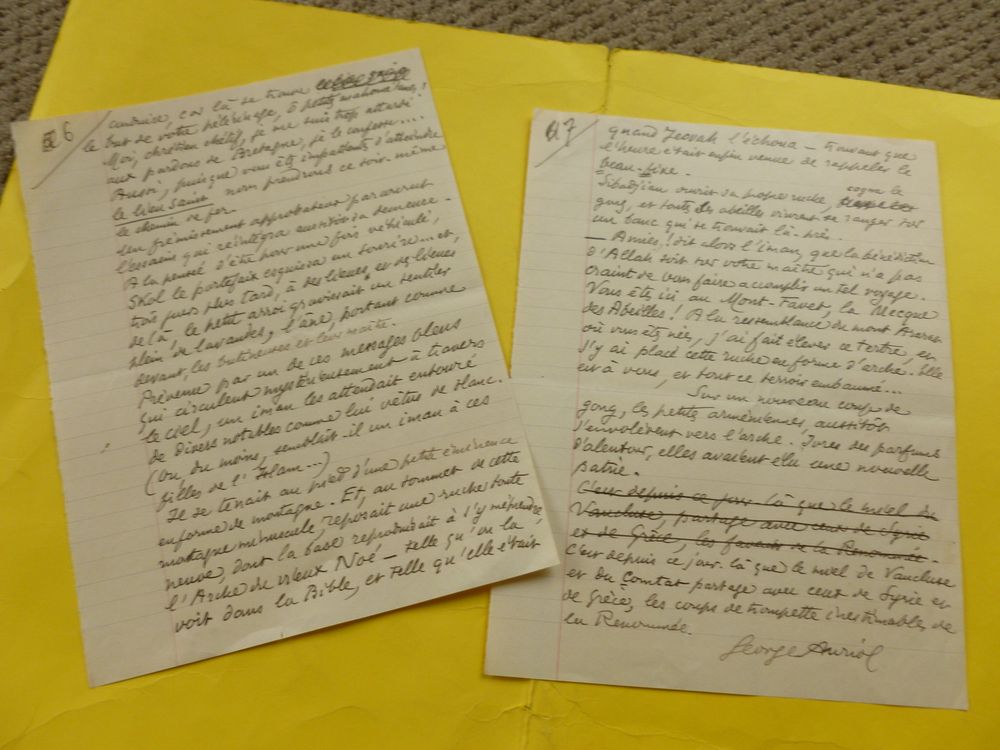 6
conduire, car là se trouve
le but de votre pèlerinage, ô petites mahométanes !
Moi, chrétien chétif, je me suis trop attardé
aux pardons de Bretagne, je le confesse....
Aussi, puisque vous êtes impatientes d'atteindre
le lieu saint nous prendrons ce soir-même
le chemin de fer.
Un frémissement approbateur parcourut
l'essaim qui réintégra aussitôt sa demeure.
A la pensée d'être pour une fois véhiculé,
Skol le portefaix esquissa un sourire... et
trois jours plus tard, à des lieues et des lieues
de là, le petit arroi gravissait un sentier
plein de lavandes, l'âne, portant comme
devant, les butineuses et leur maître.
Prévenu par un de ces messages aliens
qui circulent mystérieusement à travers
le ciel, un iman les attendait entouré
de divers notables comme lui vêtus de blanc.
(Ou du moins, semblait-il un iman à ces
filles de l'Islam...)
Il se tenait au pied d'une petite éminence
en forme de montagne. Et, au sommet de cette
montagne minuscule, reposait une ruche toute
neuve, dont la base reproduisait à s'y méprendre
l'Arche du vieux Noé — telle qu'on la
voit dans la Bible, et telle qu'elle était
7
quand Jeovah l'échoua — trouvant que
l'heure était enfin venue de rappeler le
beau-fixe.
Sibadjian ouvrit sa propre ruche, cogna le
gong, et toutes les abeilles vinrent se ranger sur
un banc qui se trouvait là-près.
— Amies, dit alors l'iman, que la bénédiction
d'Allah soit sur votre maître qui n'a pas
craint de vous faire accomplir un tel voyage.
Vous êtes ici au Mont-Favet, la Mecque
des Abeilles ! A la ressemblance du mont Ararat
où vous êtes nées, j'ai fait élever ce tertre, et
j'y ai placé cette ruche en forme d'arche. Elle
est à vous, et tout ce terroir embaumé....
Sur un nouveau coup de
gong, les petites arméniennes, aussitôt
s'envolèrent vers l'arche. Ivres des parfums
d'alentour, elles avaient élu une nouvelle
patrie.
C'est depuis ce jour là que le miel du
Vaucluse, partage avec ceux de Syrie
et de Grèce, les faveurs de la Renommée.
C'est depuis ce jour-là que le miel de Vaucluse
et du Comtat partage avec ceux de Syrie et
de Grèce, les coups de trompette inestimables de
la Renommée.
George Auriol